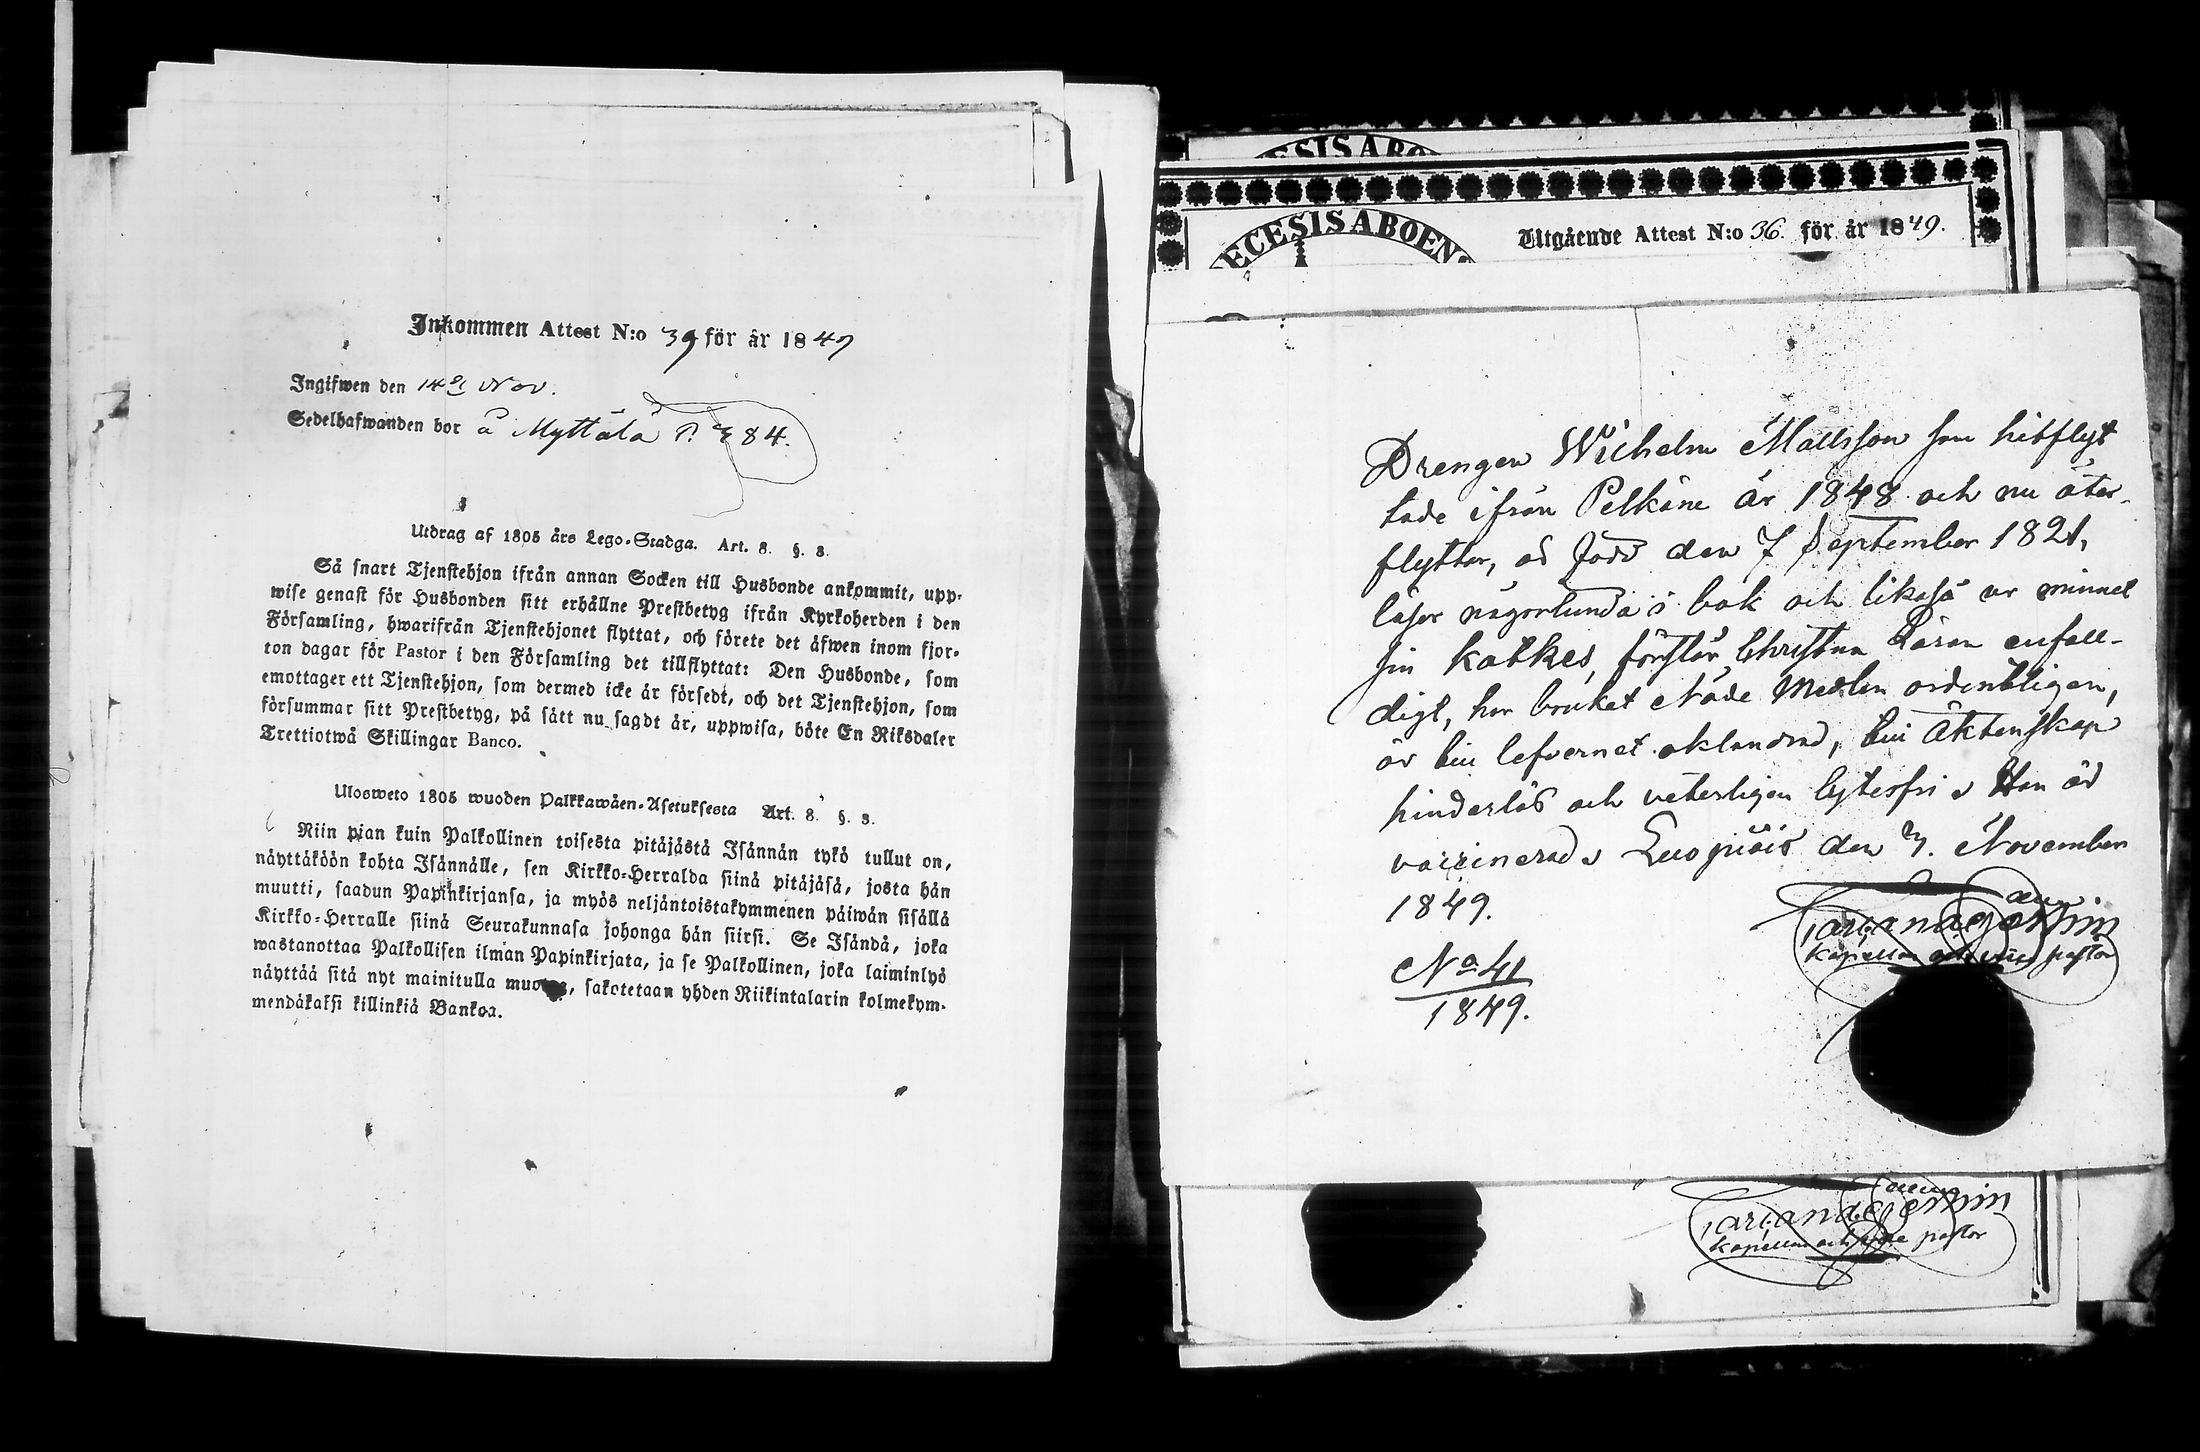 Inkommen Attest N:o 39 för år 1849
Ingifwen den 14de Nov.
Sedelhafwanden bor å Myttälä P. 84.
Utdrag af 1805 års Lego-Stadga. Art. 8. §. 8.
Så snart Tjenstehjon ifrån annan Socken till Husbonde ankommit, upp-
wise genast för Husbonden sitt erhållne Prestbetyg ifrån Kyrkoherden i den
Församling, hwarifrån Tjenstehjonet flyttat, och förete det äfwen inom fjor-
ton dagar för Pastor i den Församling det tillflyttat: Den Husbonde, som
emottager ett Tjenstehjon, som dermed icke är försedt, och det Tjenstehjon, som
försummar sitt Prestbetyg, på sätt nu sagdt är, uppwisa, böte En Riksdaler
Trettiotwå Skillingar Banco.
Ulosweto 1805 wuoden Palkkawäen-Asetuksesta Art. 8. §. 8.
Niin pian kuin Palkollinen toisesta pitäjästä Isännän tykö tullut on,
näyttäköön kohta Isännälle, sen Kirkko-Herralda siinä pitäjäsä, josta hän
muutti, saadun Papinkirjansa, ja myös neljäntoistakymmenen päiwän sisällä
Kirkko-Herralle siinä Seurakunnasa johonga hän siirsi. Se Isändä, joka
wastanottaa Palkollisen ilman Papinkirjata, ja se Palkollinen, joka laiminlyö
näyttää sitä nyt mainitulla muotoa, sakotetaan yhden Riikintalarin kolmekym-
mendäkaksi killinkiä Bankoa.
ECESIS ABO
ECESIS ABOEN
Utgående Attest N:o 36. för år 1849.
Drengen Wilhelm Mattsson som hitflyt
tade ifrån Pelkäne år 1848 och nu åter-
flyttar, är född den 7 September 1821,
läser någorlunda i bok och likaså ur minnet
sin katkes, förstår Christna Läran enfall-
digt, har brukat Nåde Medlen ordenteligen,
är till lefvernet oklandrad, till Äktenskap
hinderlös och veterligen lytesfri. Han är
vaccinerad. Luopiois den 7. November
1849.
No 41
1849.
kapellan och vice pastor
kapellan och vice pastor